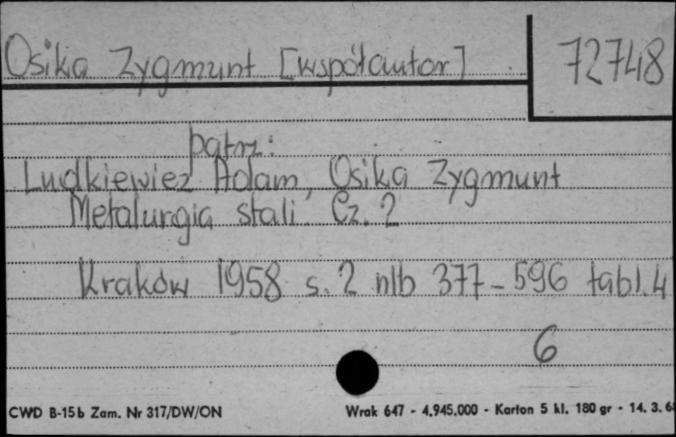 Osika Zygmunt [współautor]
72748
patrz:
Ludkiewicz Adam, Osika Zygmunt
Metalurgia stali. Cz. 2
Kraków 1958 s. 2 nlb 377-596 tabl. 4
6
CWD B-15b Zam. Nr 317/DW/ON
Wrak 647 - 4.945.000 - Karton 5 kl. 180 gr - 14. 3. 6